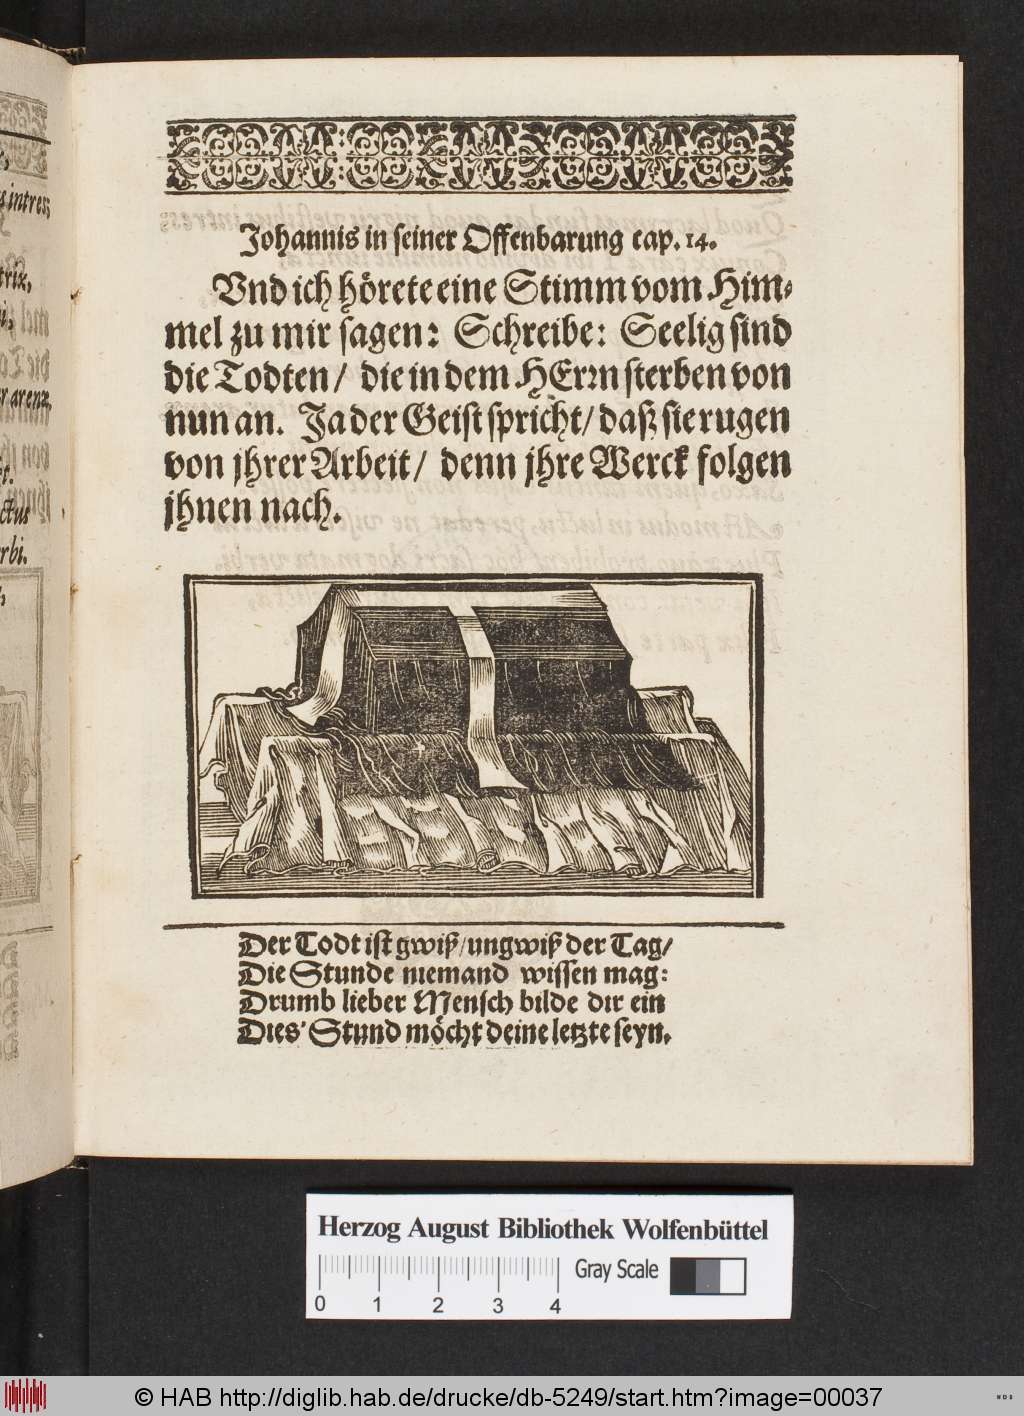 s intres;
trix,
i,
r arenæ,
t.
ctus
rbi.
Johannis in seiner Offenbarung cap. 14.
Vnd ich hörete eine Stimm vom Him-
mel zu mir sagen: Schreibe: Seelig sind
die Todten/ die in dem HErrn sterben von
nun an. Ja der Geist spricht/ daß sie rugen
von jhrer Arbeit/ denn jhre Werck folgen
jhnen nach.
Der Todt ist gwiß/ ungwiß der Tag/
Die Stunde niemand wissen mag:
Drumb lieber Mensch bilde dir ein
Dies' Stund möcht deine letzte seyn.
Herzog August Bibliothek Wolfenbüttel
Gray Scale
0 1 2 3 4
© HAB http://diglib.hab.de/drucke/db-5249/start.htm?image=00037